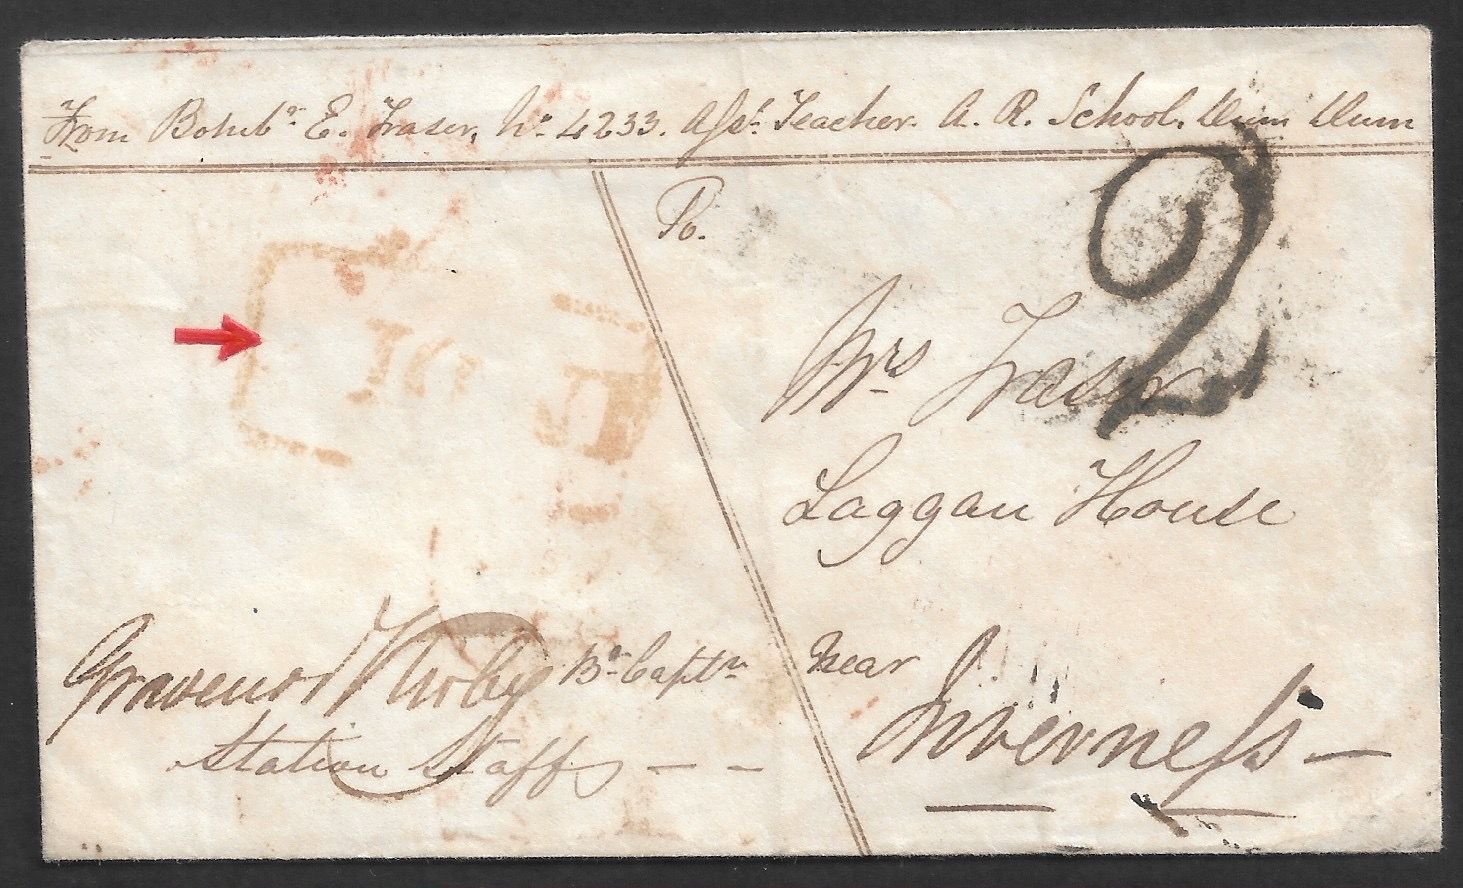 From Bombr. E. Fraser, No. 4233. Asst. Teacher. A. R. School. Dum Dum
To.
2
Mrs Fraser
Laggan House
Near
Inverness
Bt. Captn
Station Staff